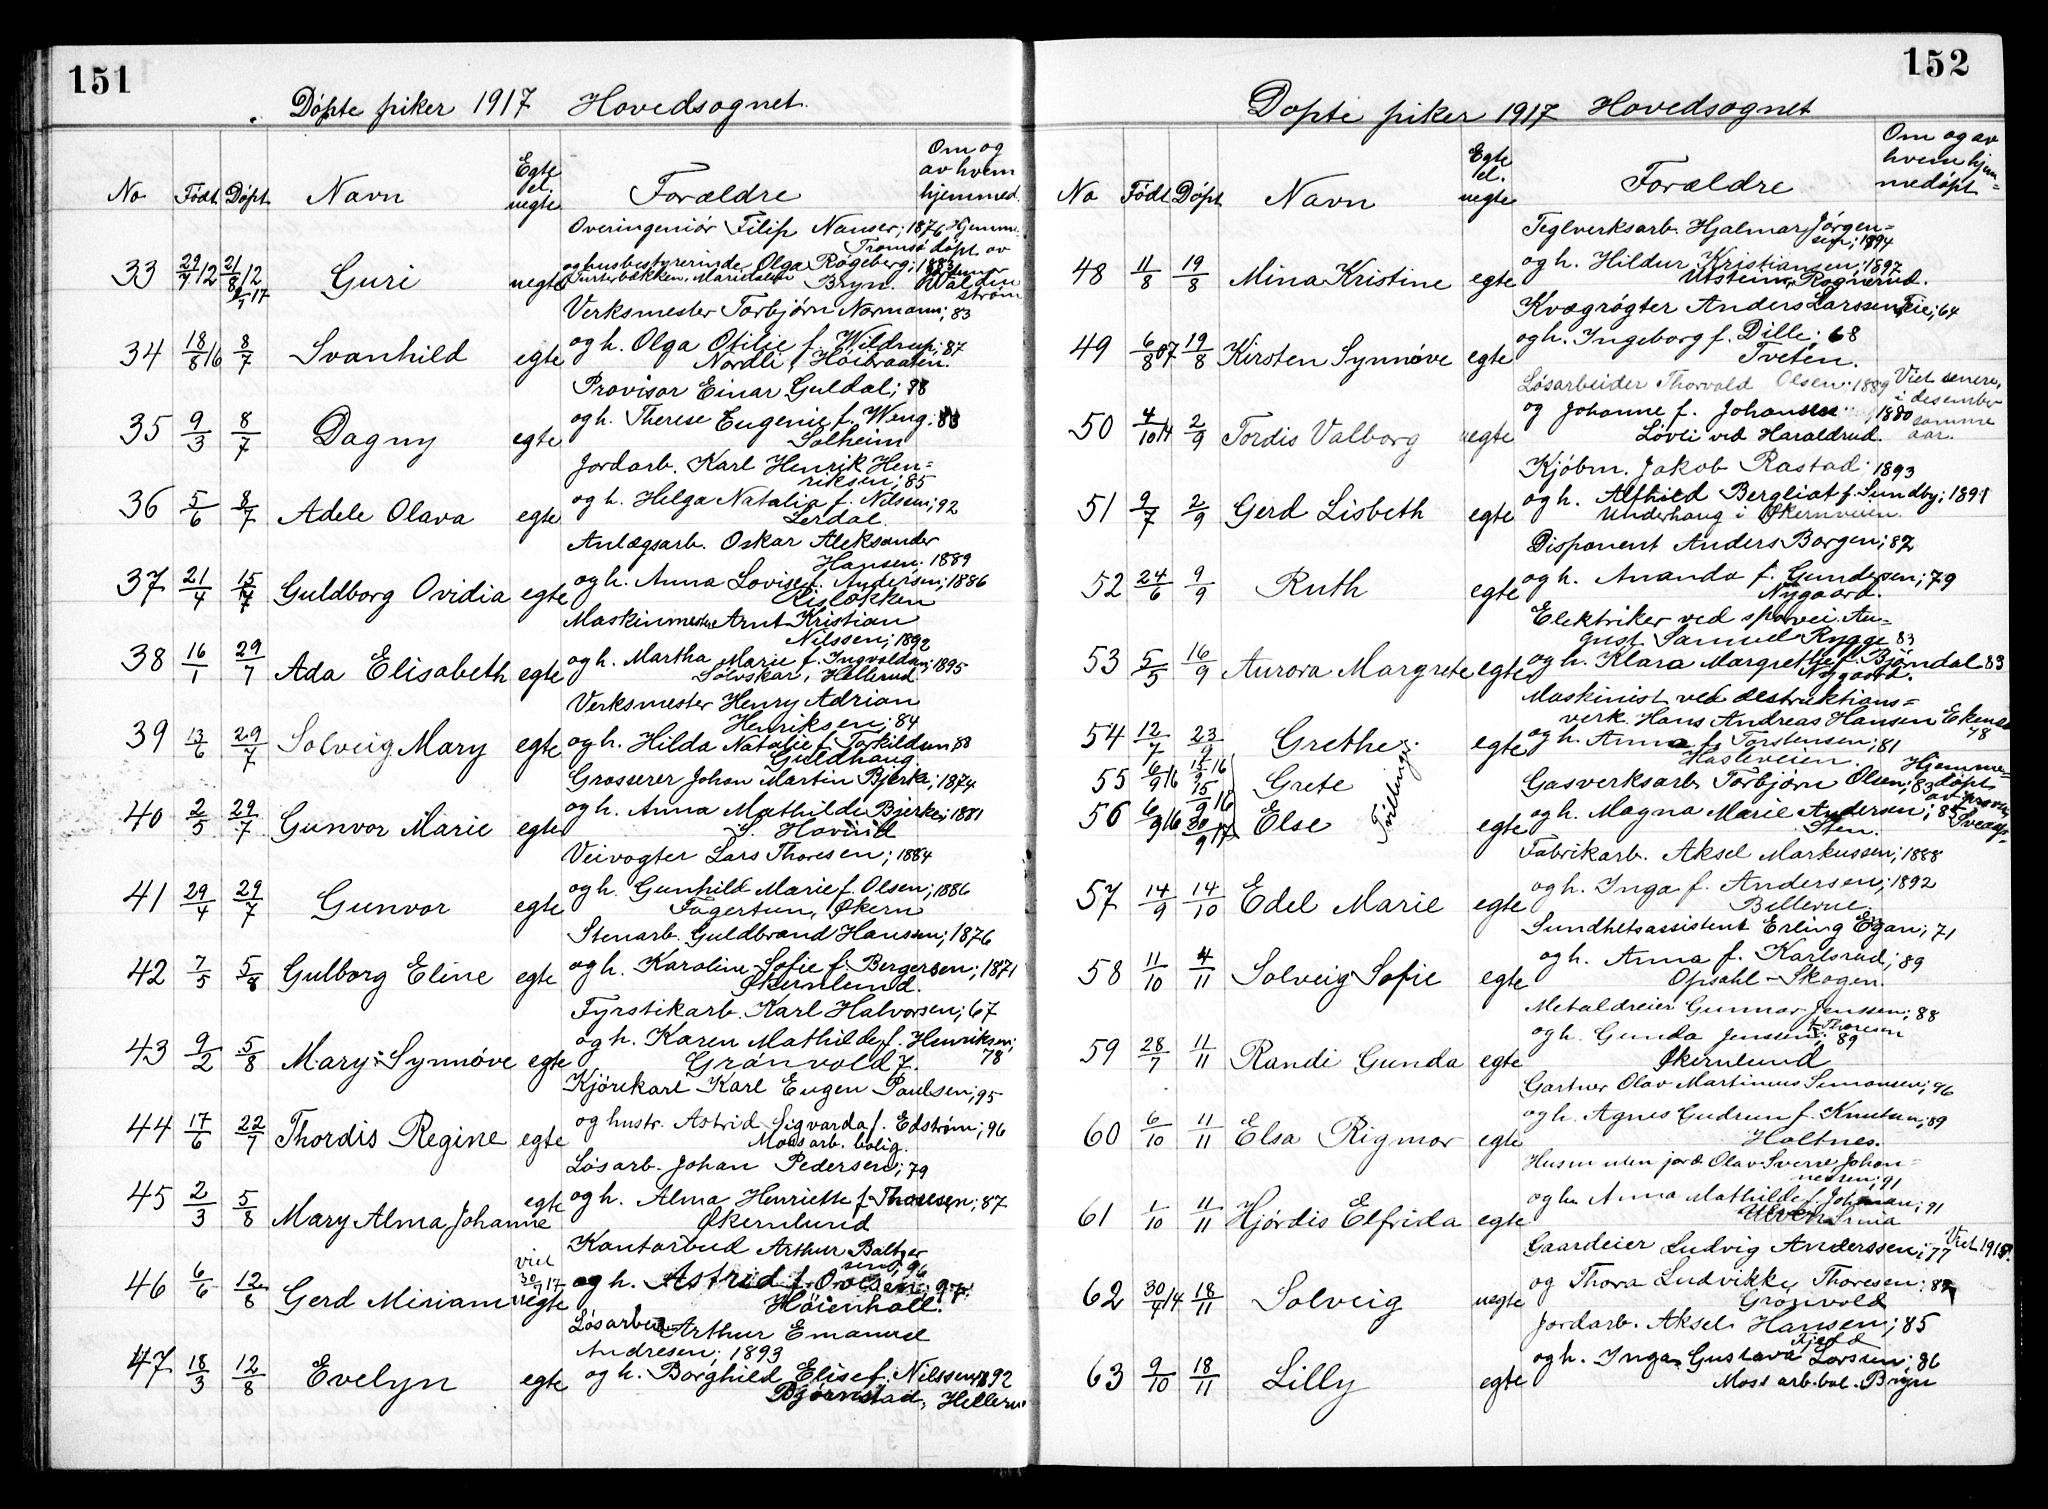 151
Døpte piker 1917 Hovedsognet.
No Født Døpt Navn Egte el. uegte Forældre Om og av hvem hjemmed.
Overingeniør Filip Nanser; 1876 Hjemme-
Tromsø døpt av
33 29/7 12 21/8 12 9/1 17 Guri uegte og husbestyrerinde Olga Rogeberg; 1883
Maridalen Bryn. Waldin
strøm
Verksmester Torbjørn Normann; 83
34 18/8 16 8/7 Svanhild egte og h. Olga Otilie f. Wildrup; 87
Nordli, Høibraaten.
Provisor Einar Guldal; 88
35 9/3 8/7 Dagny egte og h. Therese Eugenie f. Weng; 88
Solheim
Jordarb. Karl Henrik Hen-
riksen; 85
36 5/6 8/7 Adele Olava egte og h. Helga Natalia f. Nilsen; 92
Lerdal.
Anlægsarb. Oskar Aleksander
Hansen; 1889
37 21/4 15/7 Guldborg Ovidia egte og h. Anna Lovise f. Andersen; 1886
Risløkken
Maskinmester Arnt Kristian
Nilssen; 1892
38 16/1 29/7 Ada Elisabeth egte og h. Martha Marie f. Ingvoldsen; 1895
Sølvskar, Hellerud.
Verksmester Henry Adrian
Henriksen; 84
39 13/6 29/7 Solveig Mary egte og h. Hilda Natalie f. Torkildsen; 88
Guldhaug.
Grosserer Johan Martin Bjerke; 1874
40 2/5 29/7 Gunvor Marie egte og h. Anna Mathilde Bjerke; 1881
S. Hovind
Veivogter Lars Thoresen; 1884
41 29/4 29/7 Gunvor egte og h. Gunhild Marie f. Olsen; 1886
Fagertun, Økern
Stenarb. Guldbrand Hanssen; 1876
42 7/5 5/8 Gulborg Eline egte og h. Karoline Sofie f. Bergersen; 1871
Økernlund.
Fyrstikarb. Karl Halvorsen; 67
43 9/2 5/8 Mary Synnøve egte og h. Karen Mathilde f. Henriksen;
Grønvold 7. 78
Kjørekarl Karl Eugen Paulsen; 95
44 17/6 22/7 Thordis Regine egte og hustr. Astrid Sigvarda f. Edstrøm; 96
Moss arb. bolig.
Løsarb. Johan Pedersen; 79
45 2/3 5/8 Mary Alma Johanne egte og h. Alma Henriette f. Thoresen; 87
Økernlund
Kontorbud Arthur Baltzer
viet sen; 96
46 6/6 12/8 Gerd Miriam 30/7 17 uegte og h. Astrid f. Ovesen; 97.
Høienhall.
Løsarbei Arthur Emanuel
Andresen; 1893
47 18/3 12/8 Evelyn egte og h. Borghild Elise f. Nilssen; 1892
Bjørnstad, Hellerud
152
Døpte piker 1917 Hovedsognet
No Født Døpt Navn Egte el. uegte Forældre Om og av hvem hjem-
medøpt
Teglverksarb. Hjalmar Jørgen-
sen; 1894
48 11/8 19/8 Mina Kristine egte og h. Hildur Kristiansen; 1897
Utsteinen Rognerud.
Kvægrøgter Anders Larssen Feie; 64
49 6/8 07 19/8 Kirsten Synnøve egte og h. Ingeborg f. Dille; 68
Tveten.
Løsarbeider Thorvald Olsen; 1889 Viet senere,
i desember
50 4/10 14 2/9 Tordis Valborg uegte og Johanne f. Johansen 1880 samme
Løvli ved Haraldrud. aar.
Kjøbm. Jakob Rastad; 1893
51 9/7 2/9 Gerd Lisbeth egte og h. Alfhild Bergliot f. Sundby; 1891
Underhaug i Økernveien.
Disponent Anders Borgen; 82
52 24/6 9/9 Ruth egte og h. Ananda f. Gundersen; 79
Nygaard.
Elektriker ved sporvei. Au-
gust Samuel Rygge 83
53 5/5 16/9 Aurora Margrete egte og h. Klara Margrethe f. Bjørndal 83
Nygaard.
Maskinist ved destruktions-
verk. Hans Andreas Hansen Ekenes
78
54 12/7 23/9 Grethe egte og h. Anna f. Torstensen; 81
Hasleveien.
55 6/9 16 15/9 16 Grete Gasverksarb. Torbjørn Olsen; 83 Hjemme-
døpt
56 6/9 16 15/9 16 30/9 17 Else Tvillinger egte og h. Magna Marie Andersen; 85
Sten.
Fabrikarb. Aksel Markussen; 1888
57 14/9 14/10 Edel Marie egte og h. Inga f. Andersen; 1892
Billerne.
Sundhetsassistent Erling Egan; 71
58 11/10 4/11 Solveig Sofie egte og h. Anna f. Karlsrud; 89
Opsahl - Skogen.
Metaldreier Gunnar Jenssen; 88
59 28/7 11/11 Randi Gunda egte og h. Gunda Jenssen f. Thoresen; 89
Økernlund
Gartner Olav Martinus Simonsen; 96
60 6/10 11/11 Elsa Rigmor egte og h. Agnes Gudrun f. Knutsen; 89
Holtnes.
Husm uten jord Olav Sverre Johan-
nessen; 91
61 1/10 11/11 Hjørdis Elfrida egte og h. Anna Mathilde f. Johansen; 91
Ulven
Gaardeier Ludvig Anderssen; 77 Viet 1918.
62 30/7 14 18/11 Solveig uegte og Thora Ludvikke Thoresen; 88
Grønvold
Jordarb. Aksel Hansen; 85
63 9/10 18/11 Lilly egte og h. Inga Gustava Larsen; 86
Moss arb.bol. Bryn